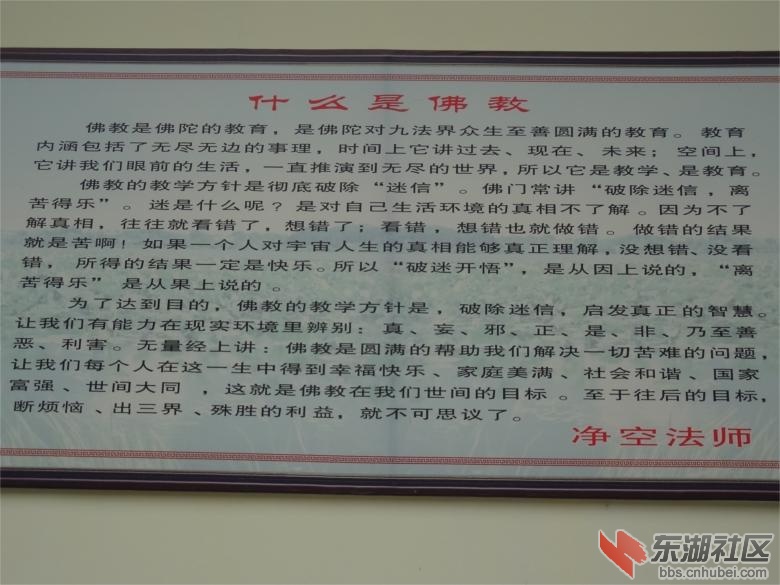 什么是佛教
佛教是佛陀的教育，是佛陀对九法界众生至善圆满的教育。教育
内涵包括了无尽无边的事理，时间上它讲过去、现在、未来；空间上，
它讲我们眼前的生活，一直推演到无尽的世界，所以它是教学、是教育。
佛教的教学方针是彻底破除“迷信”。佛门常讲“破除迷信，离
苦得乐”。迷是什么呢？是对自己生活环境的真相不了解。因为不了
解真相，往往就看错了，想错了；看错，想错也就做错。做错的结果
就是苦啊！如果一个人对宇宙人生的真相能够真正理解，没想错、没看
错，所得的结果一定是快乐。所以“破迷开悟”，是从因上说的，“离
苦得乐”是从果上说的。
为了达到目的，佛教的教学方针是，破除迷信，启发真正的智慧。
让我们有能力在现实环境里辨别：真、妄、邪、正、是、非、乃至善
恶、利害。无量经上讲：佛教是圆满的帮助我们解决一切苦难的问题，
让我们每个人在这一生中得到幸福快乐、家庭美满、社会和谐、国家
富强、世间大同，这就是佛教在我们世间的目标。至于往后的目标，
断烦恼、出三界、殊胜的利益，就不可思议了。
净空法师
东湖社区
bbs.cnhubei.com